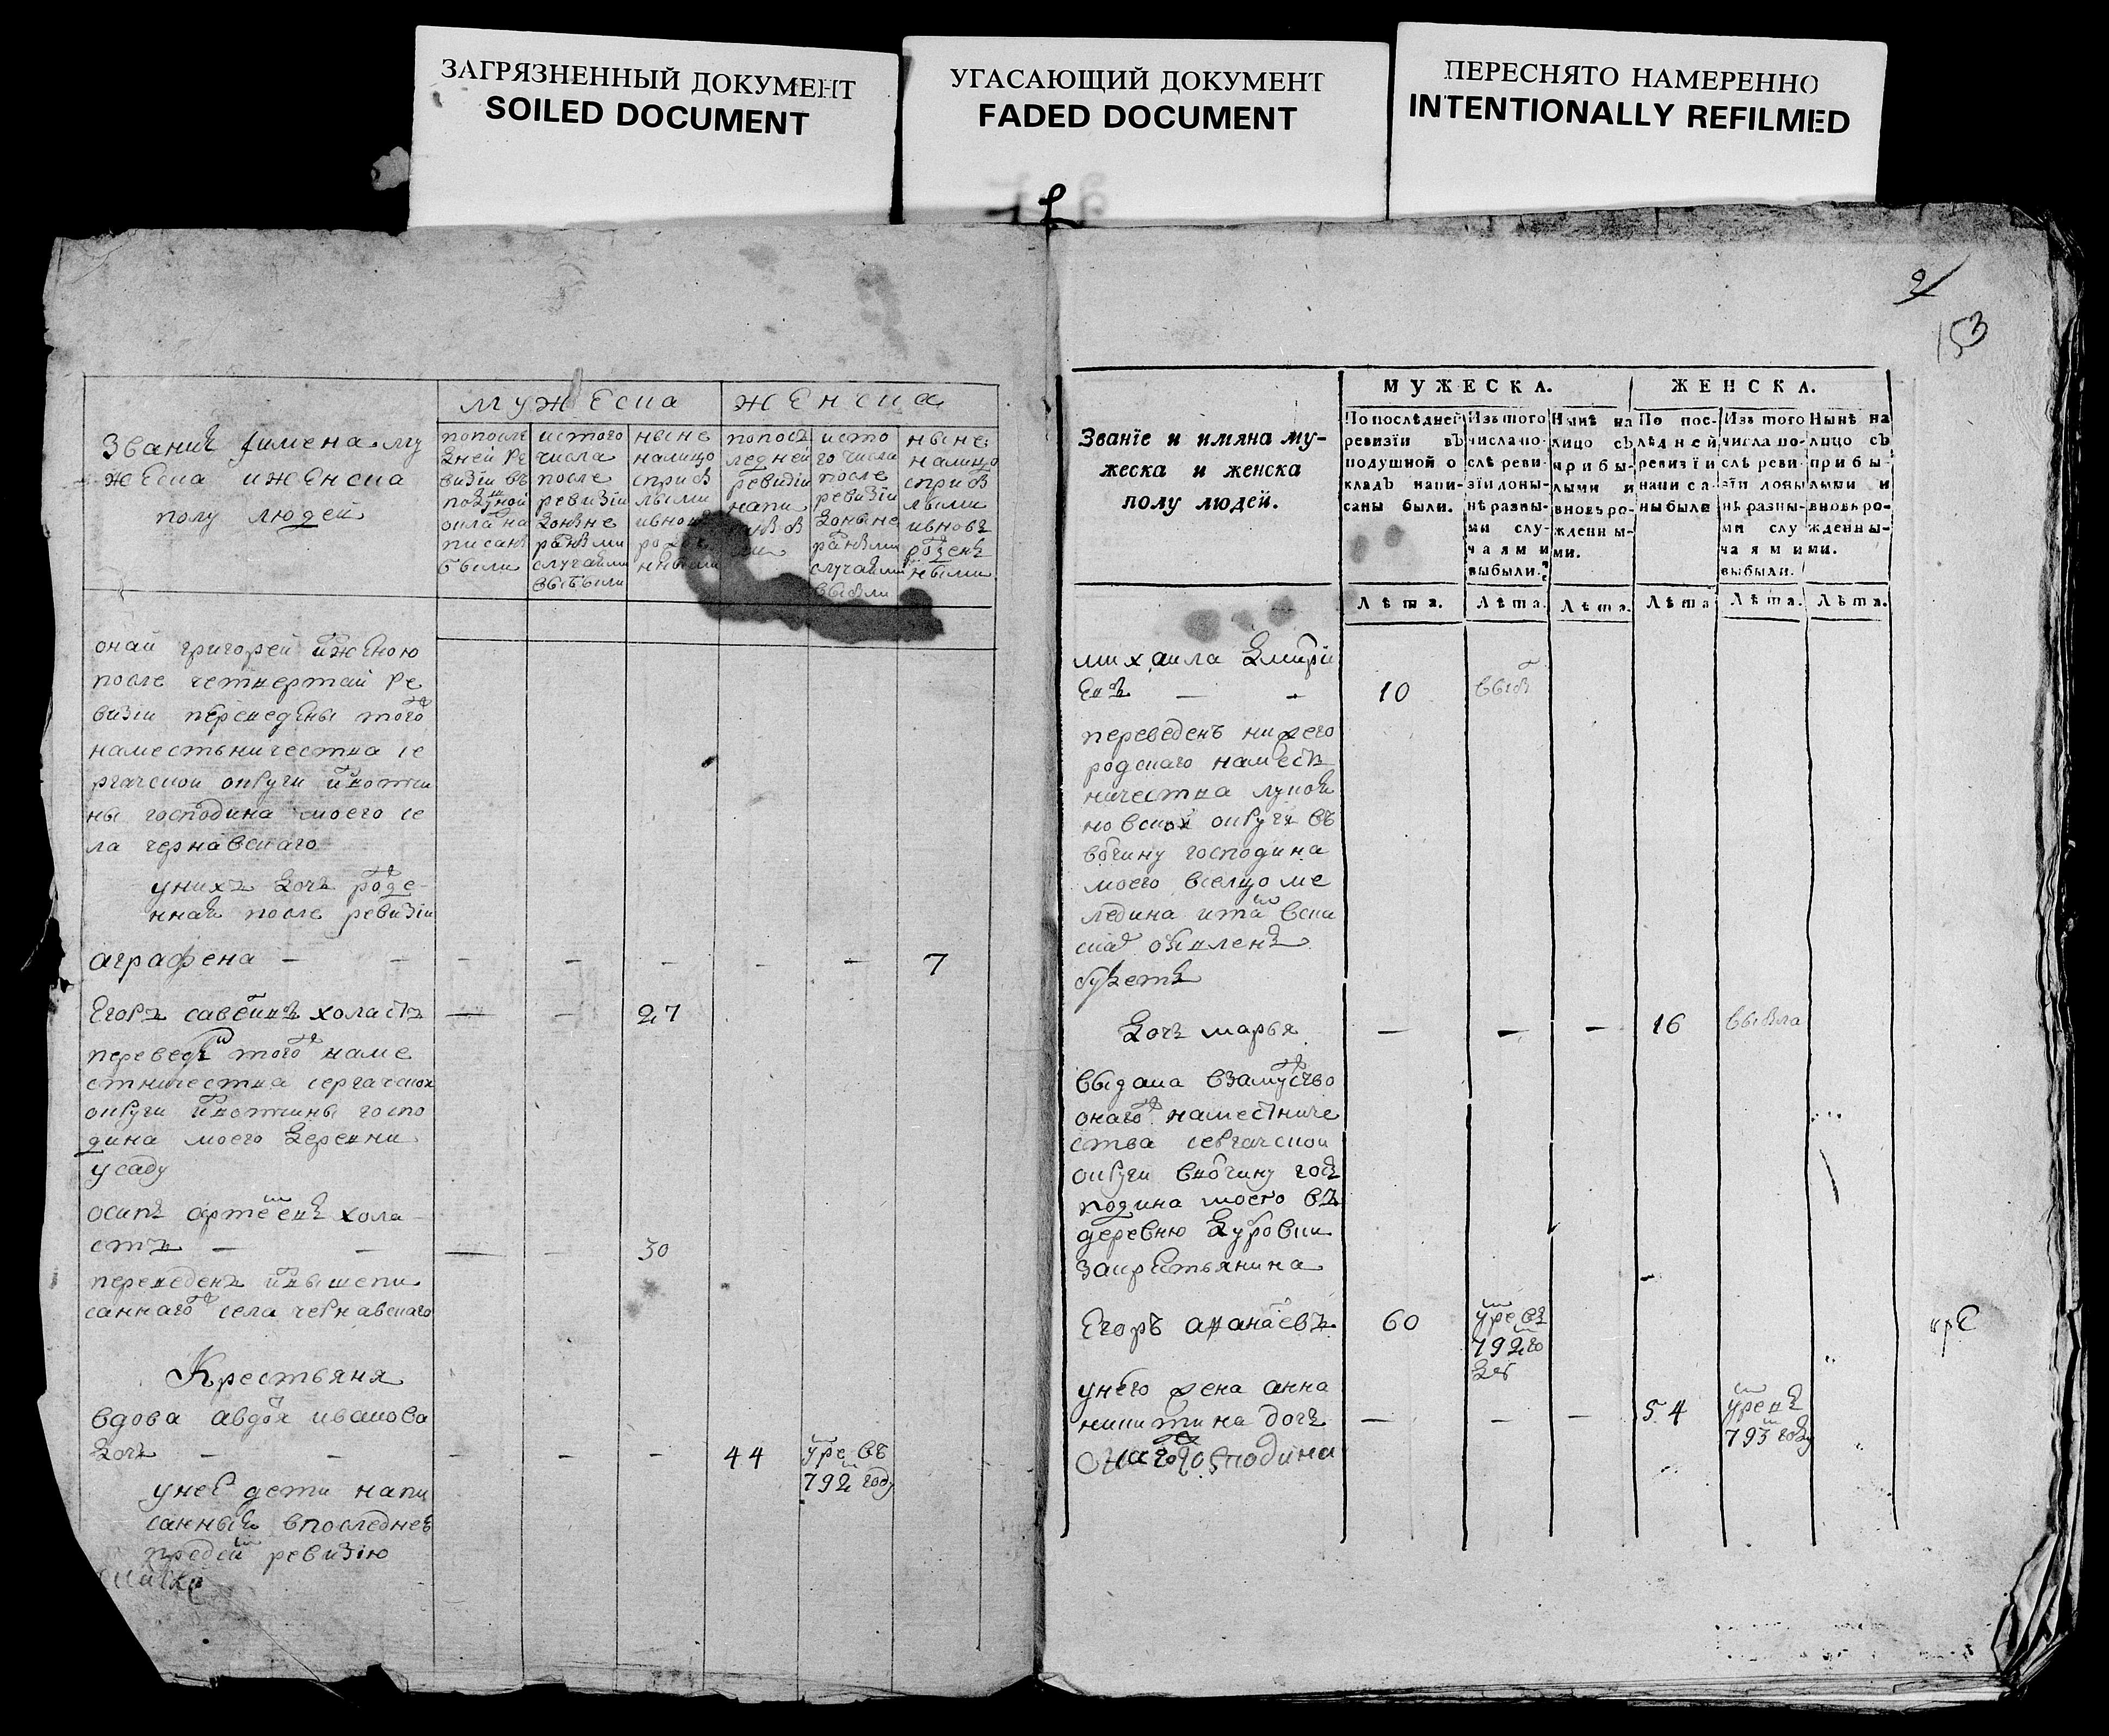 ЗАГРЯЗНЕННЫЙ ДОКУМЕНТ
SOILED DOCUMENT
УГАСАЮЩИЙ ДОКУМЕНТ
FADED DOCUMENT
ПЕРЕСНЯТО НАМЕРЕННО
INTENTIONALLY REFILMED
мужеска
женска
звание имена му
жеска и женска
полу людей
попосле
дней ре
визiи въ
подушной
окладъ на
писаны
были
истого
числа
после
ревизiи
доныне
разными
случаями
выбыли
ныне
налицо
сприб
лыми
ивновь
попосъ
ледней
ревизiи
напи
исто
го числа
после
ревизiи
доныне
разными
случаями
выбыли
ныне
налицо
сприб
лыми
ивновъ
рожден
ными
онай григорей изженою
после четвертай ре
визiи переведены того
наместьничества се
ргачскои округи извотчи
ны господина моего се
ла чернавскаго
унихъ дочь рожде
нная после ревизiи
аграфена - - - - - - - 7
Егоръ савельивъ холастъ - - 27
переведен из того наме
стничества сергачскои
округи извотчины госпо
дина моего деревни
усаду
осипъ артемьевъ хола
стъ - - - - 30
переведенъ извышепи
саннаго села чернавскаго
Крестьяня
вдова авдотья иванова
дочь - - - - - 44 умре въ
792 году
унеё дети напи
санныя впоследнею
пред сим ревизiю
2
153
МУЖЕСКА.
ЖЕНСКА.
Званїе и имяна му-
жеска и женска
полу людей.
По послѣдней
ревизїи въ
подушной о
кладъ напи-
саны были.
Изъ того
числа по-
слѣ реви-
зїи доны-
нѣ разны-
ми слу-
чаями
выбыли.
Нынѣ на
лицо съ
прибы-
лыми и
вновь ро-
жденны-
ми.
По пос-
лѣдней
ревизїи
написа-
ны были
Изъ того
числа по-
слѣ реви-
зїи доны
нѣ разны-
ми слу
чаями
выбыли.
Нынѣ на
лицо съ
прибы-
лыми и
вновь ро-
жденны-
ми.
Лѣта. Лѣта. Лѣта. Лѣта Лѣта. Лѣта.
михаила дмитри
евъ - - 10 выб
переведенъ нижего
родскаго наместъ
ничества лукоя
новской округи въ
вотчину господина
моего вселцо ме
ледина итамо вспи
ске объявленъ
будетъ
дочь марья - - - 16 выбыла
выдана взамужство
онаго наместниче
ства сергачскои
округи ввотчину гос
подина моего въ
деревню дубровки
закрестьянина
Егоръ афанасевъ 60 умре въ
792 го
ду
унего жена анна
никитина дочь - - - 54 умре въ
793 году
онаго господина